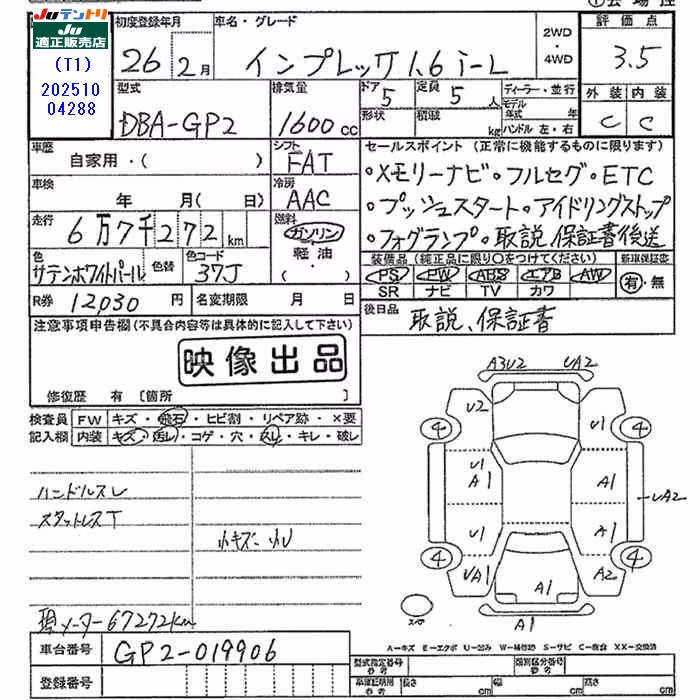 Juテントリ
Ju
適正販売店
(T1)
202510
04288
初度登録年月
26 2月
車名・グレード
インプレッサ 1.6 i-L
2WD
・
4WD
評価点
3.5
外装 内装
C C
型式
DBA-GP2
排気量
1600cc
ドア
5
定員
5人
形状
積載
kg
ディーラー・並行
モデル年式 年
ハンドル 左・右
車歴
自家用・( )
シフト
FAT
車検
年 月( 日)
冷房
AAC
走行
6万7千272km
燃料
ガソリン
軽油
色
サテンホワイトパール
色替
色コード
37J
R券 12030円
名変期限 月 日
セールスポイント(正常に機能するものに限ります)
・メモリーナビ・フルセグ・ETC
・プッシュスタート・アイドリングストップ
・フォグランプ・取説、保証書後送
装備品(純正品に限り○をつけてください)
PS PW ABS エアB AW
SR ナビ TV カワ
新車保証書
有・無
後日品
取説、保証書
注意事項申告欄(不具合内容等は具体的に記入して下さい)
映像出品
修復歴 有 [箇所 ]
検査員 FW キズ・飛石・ヒビ割・リペア跡・×要
記入欄 内装 キズ・汚レ・コゲ・穴・スレ・キレ・破レ
ハンドルスレ
スタットレスT
小キズ・小U
現メーター67272km
車台番号 GP2-019906
登録番号
A3U2 UA2
U2 U1
4 4
U1
A1 A1
UA2
U1 A1
4 4
UA1 A1 A2
スペア
A1
A=キズ E=エクボ U=凹み W=補修跡 S=サビ C=腐食 XX=交換済
型式指定番号
参考
類別区分番号
参考
車庫証明用
参考
長さ cm
幅 cm
高さ cm